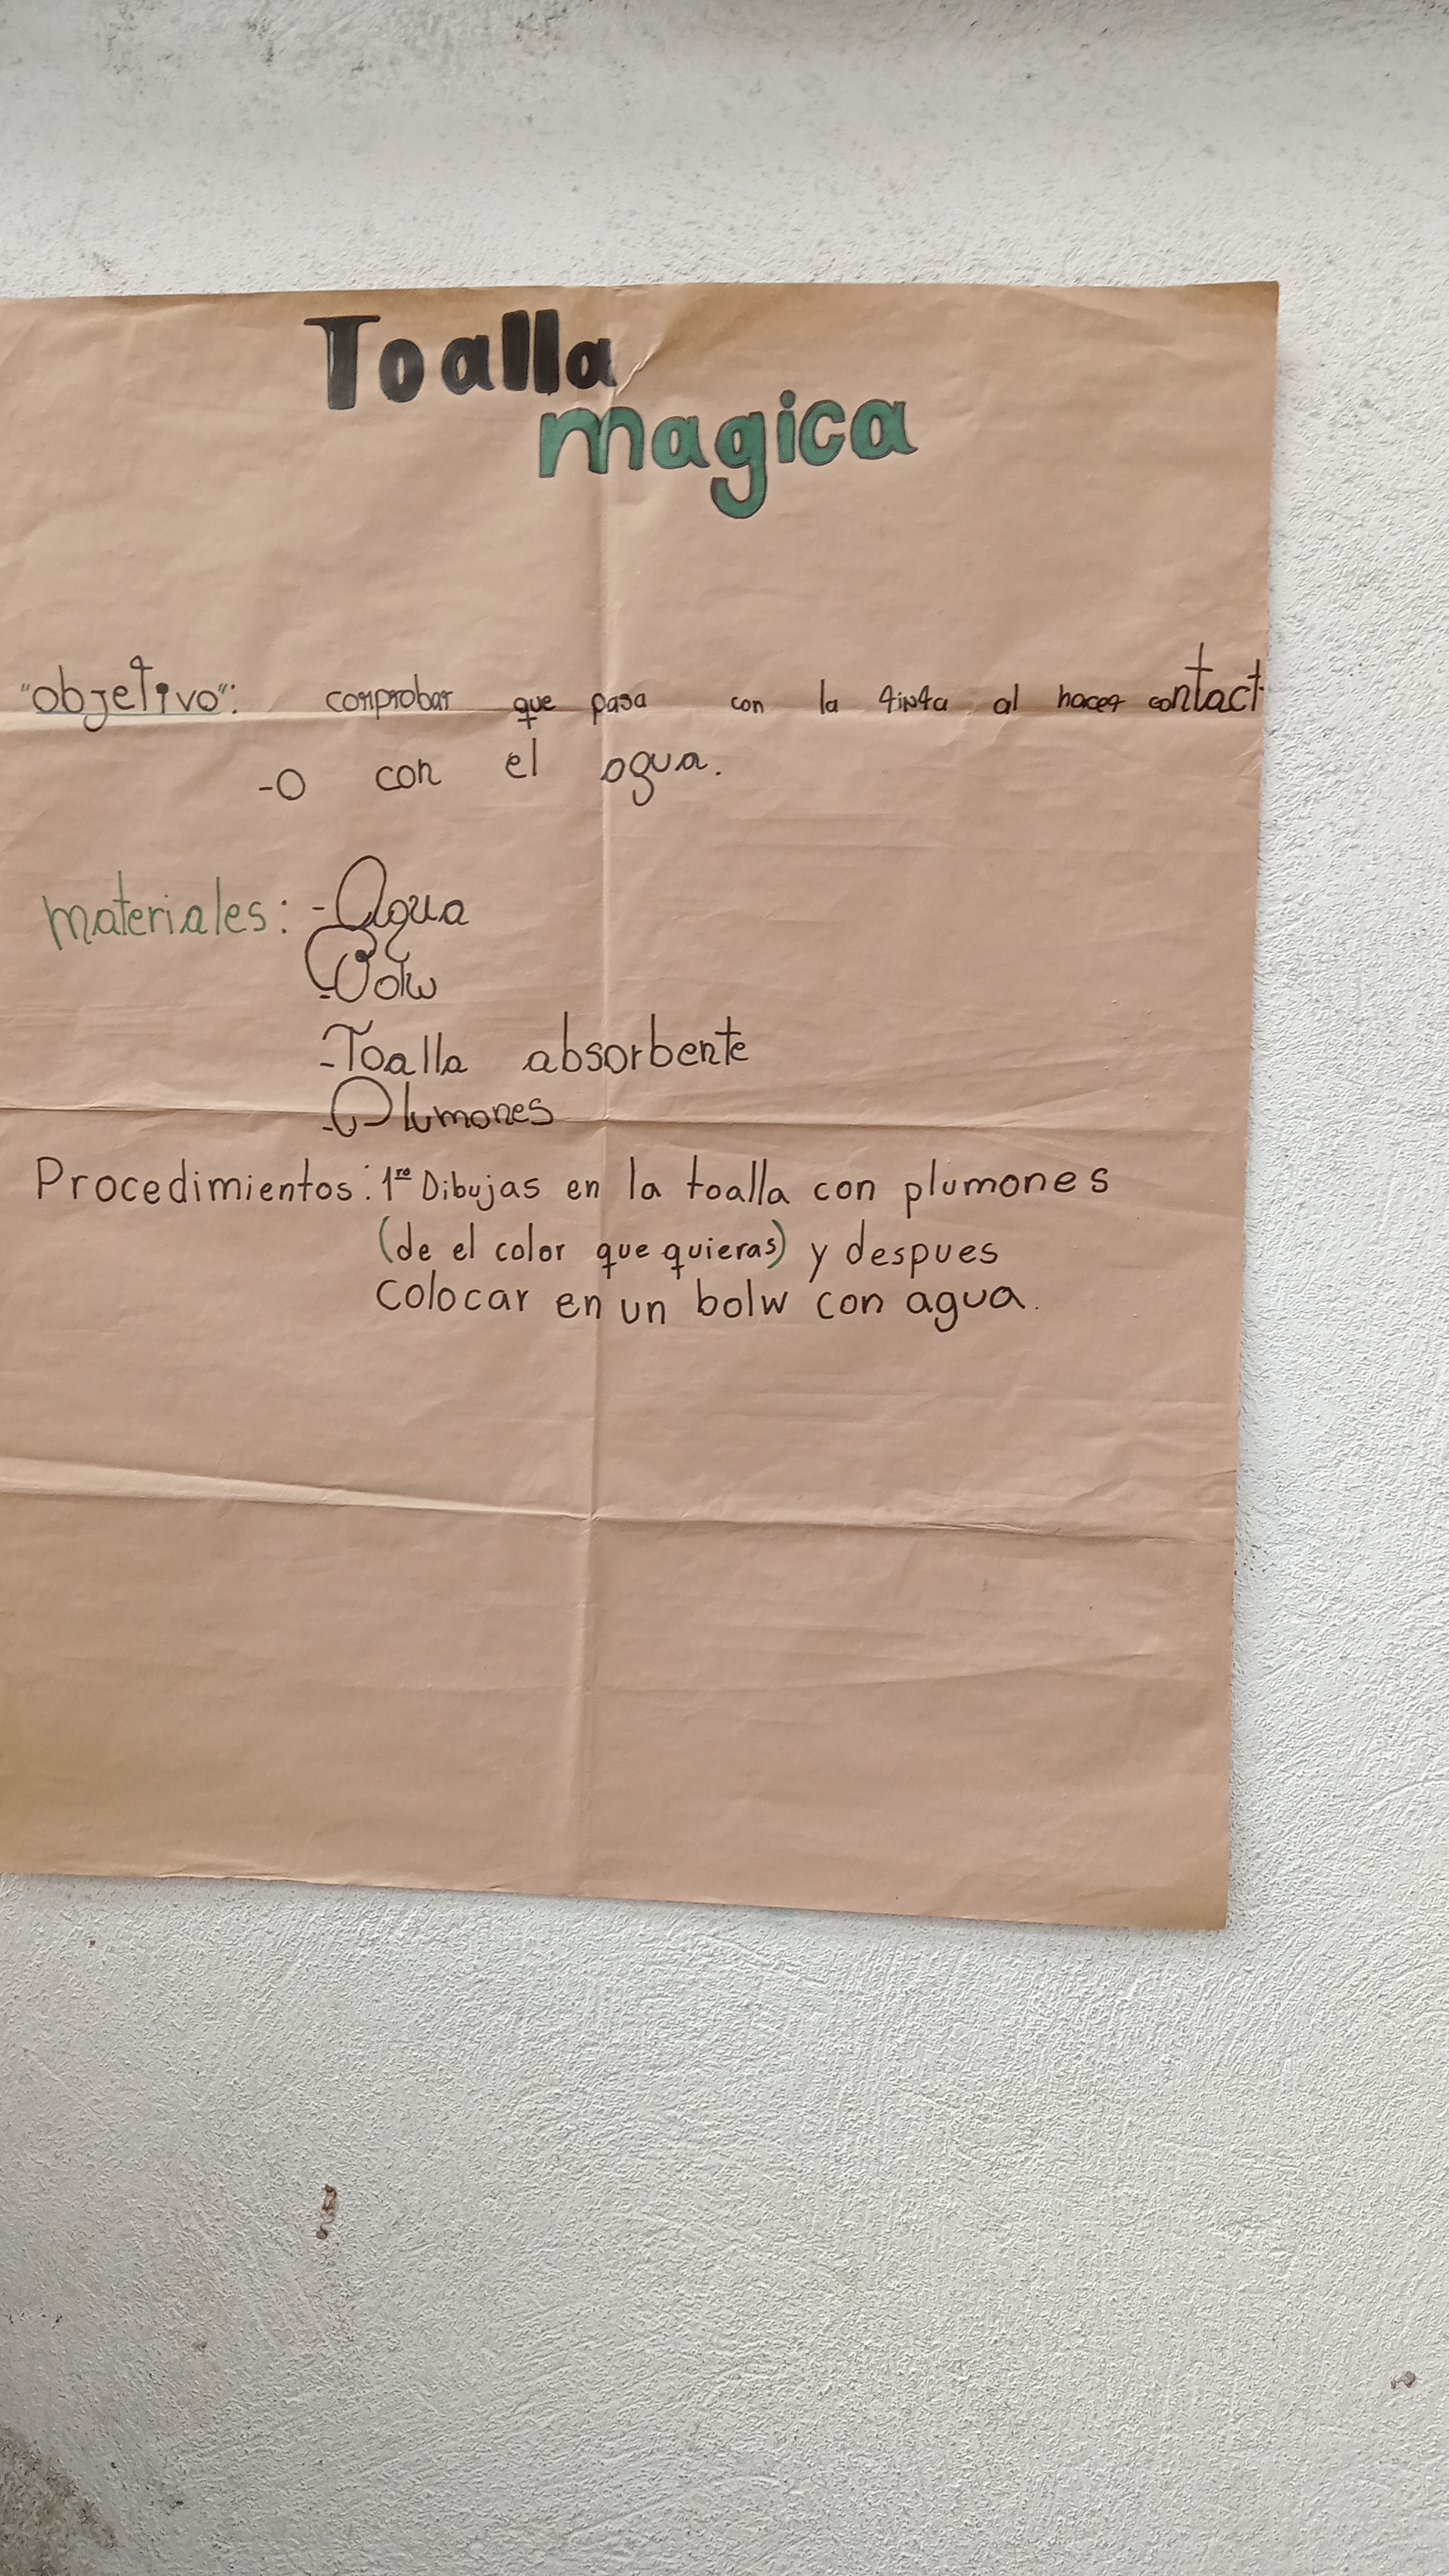 Toalla
magica
"objetivo": comprobar que pasa con la tinta al hacer contact
-o con el agua.
materiales: -Agua
-Bolw
-Toalla absorbente
-Plumones
Procedimientos: 1ro Dibujas en la toalla con plumones
(de el color que quieras) y despues
colocar en un bolw con agua.